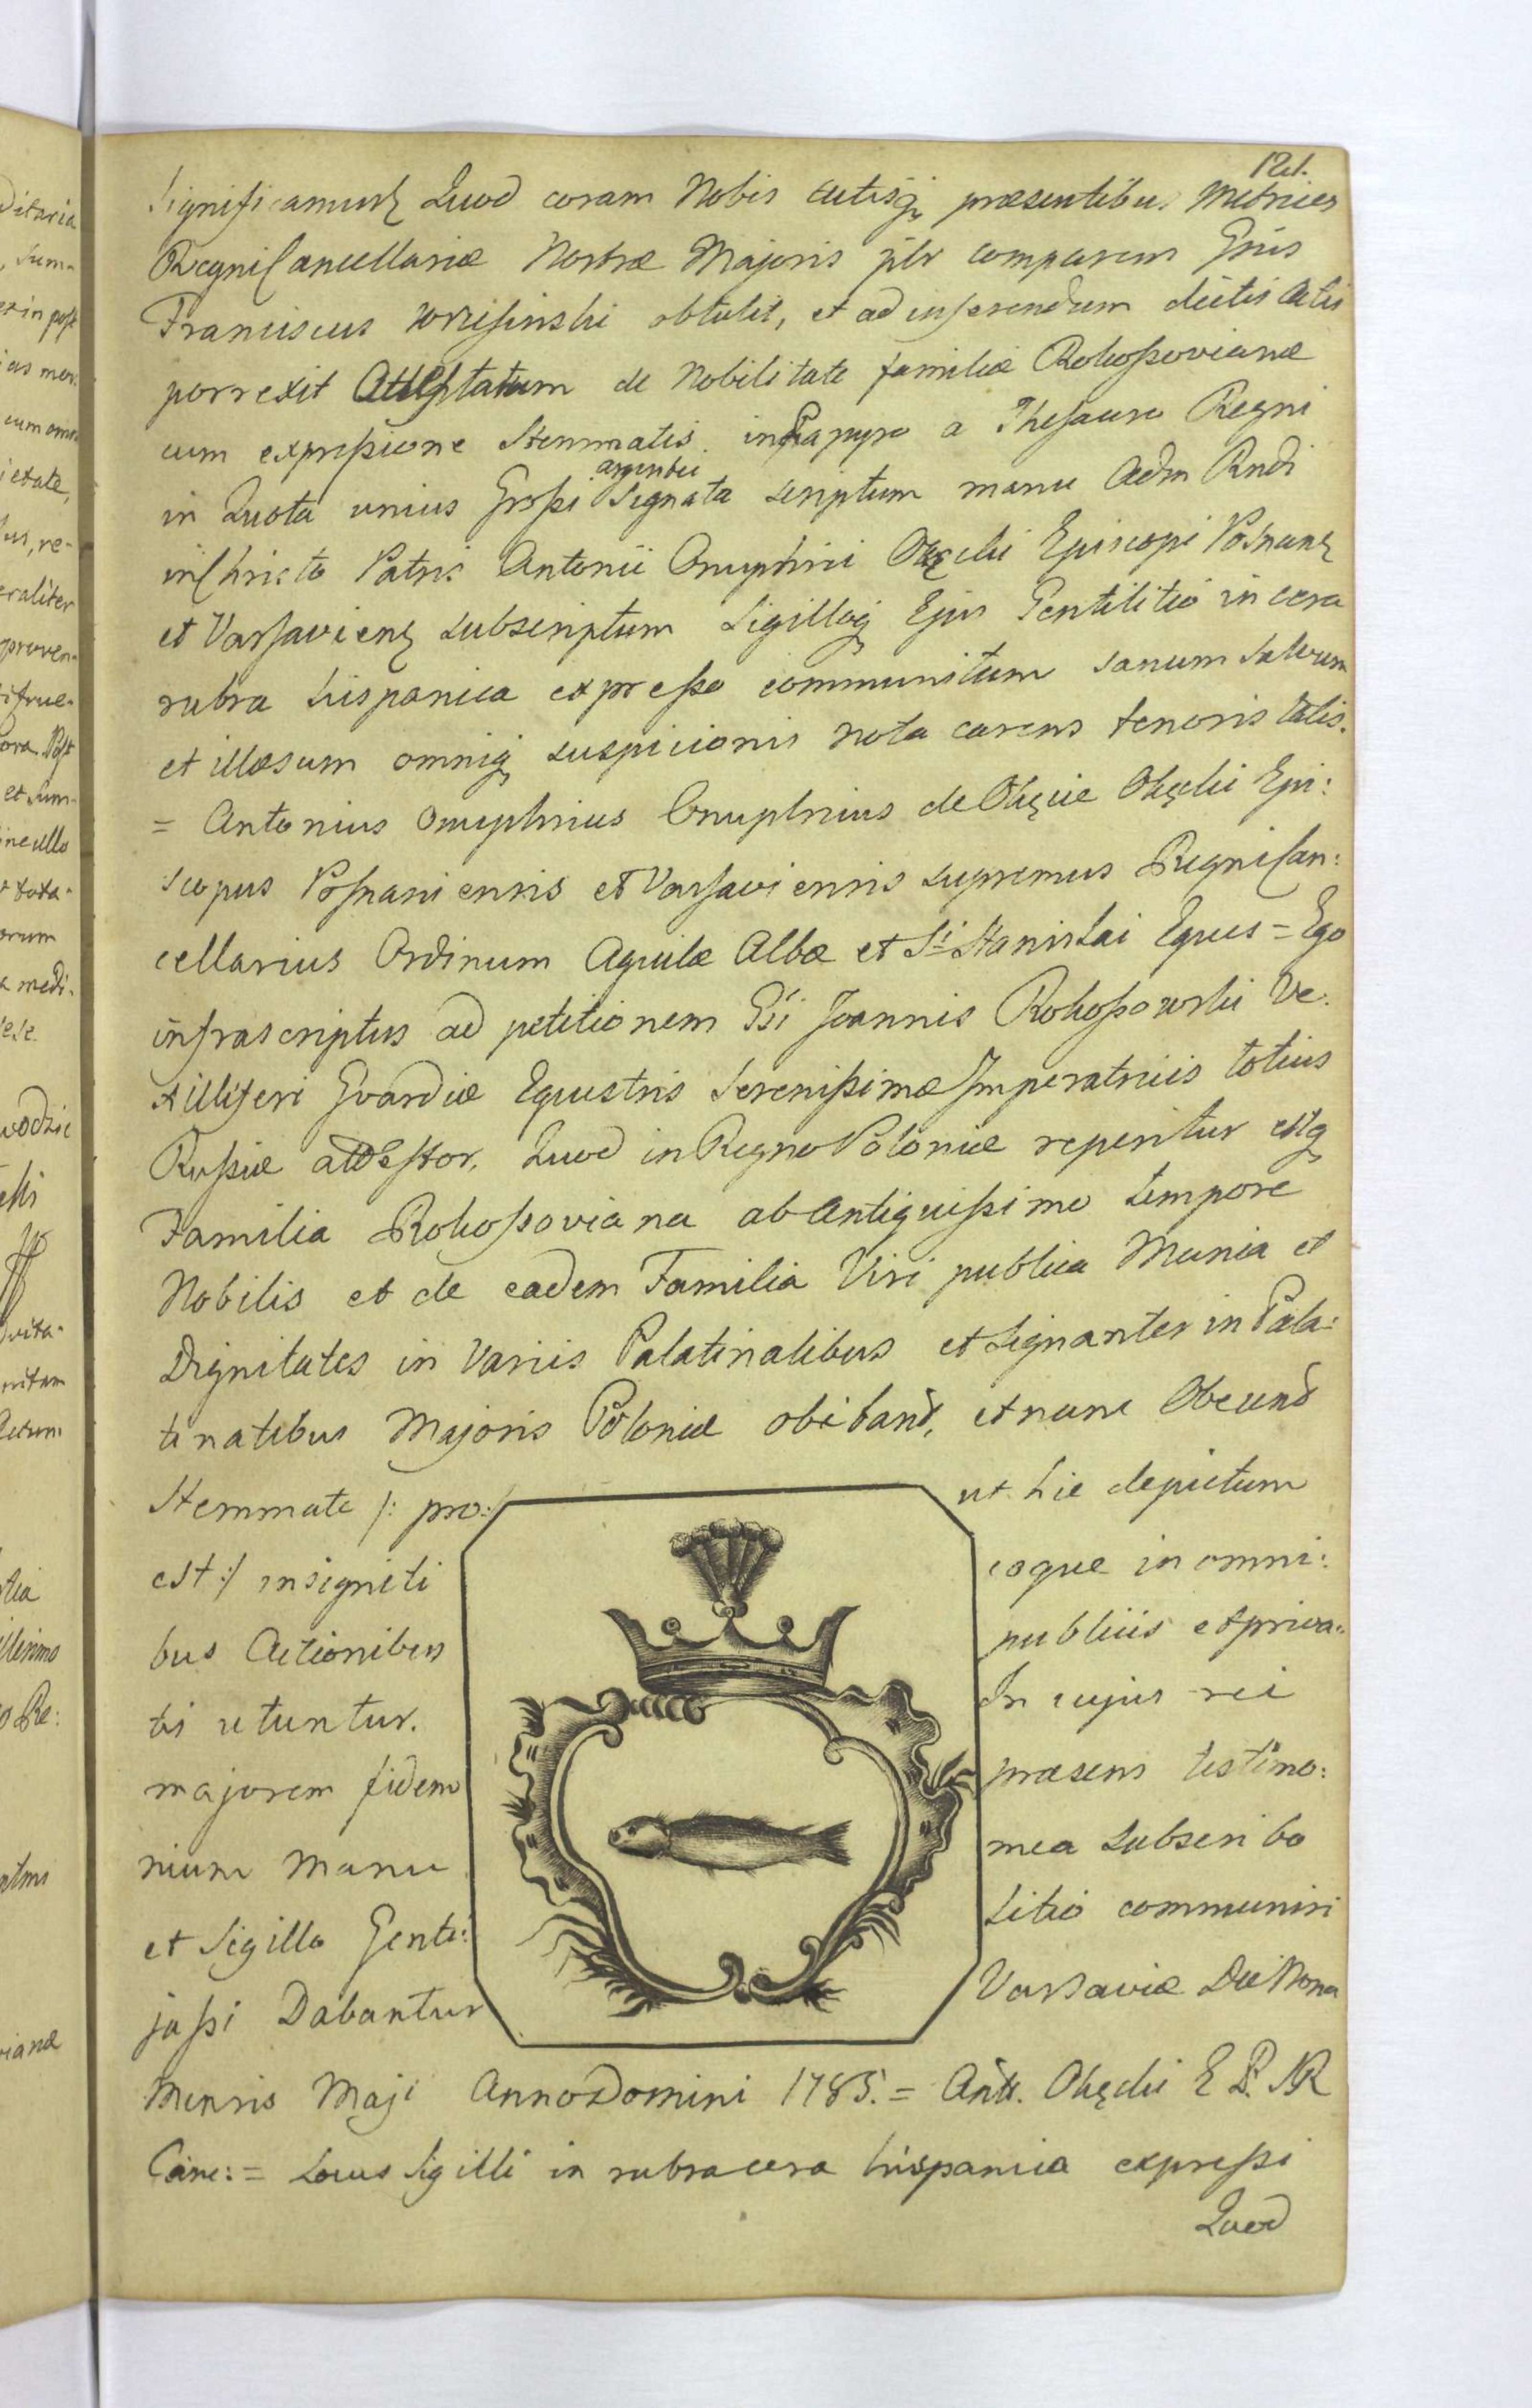 121.
Significamusq Quod coram Nobis Actisq praesentibus Metrices
Regni Cancellariæ Nostræ Majoris plr comparens Gnus
Franciscus Wrzesinski obtulit, et ad inserendum dictis Actis
porrexit Attestatum de Nobilitate familiæ Rokossovianæ
cum expressione Stemmatis in Papyro a Thesauro Regni
in Quota unius Grossi argentei Signata scriptum manu Adm Rndi
in Christo Patris Antonii Onuphrii Okęcki Episcopi Posnanq
et Varsavienq subscriptum Sigilloq Ejus Gentilitio in cera
rubra hispanica expresso communitum sanum salvum
et illæsum omniq suspicionis nota carens tenoris talis.
= Antonius Onuphrius Onuphrius de Okęcie Okęcki Epi:
scopus Posnaniensis et Varsaviensis supremus Regni Can:
cellarius Ordinum Aquilæ Albæ et S:ti Stanislai Eques = Ego
infrascriptus ad petitionem Gsi Joannis Rokossowski Ve:
xilliferi Gvardiæ Equestris Serenissimæ Imperatricis totius
Russiæ attestor, Quod in Regno Poloniæ reperitur estq
Familia Rokossoviana ab Antiquissimo tempore
Nobilis et de eadem Familia Viri publica Munia et
Dignitates in Variis Palatinatibus et signanter in Pala:
tinatibus Majoris Poloniæ obibant, et nunc Obeunt
Stemmate /: pro: ut hic depictum
est :/ insigniti eoque in omni:
bus Actionibus publicis et priva:
tis utuntur. In cujus rei
majorem fidem præsens testimo:
nium Manu mea subscribo
et Sigillo Genti: litio communiri
jussi Dabantur Varsaviæ Die Nona
Mensis Maji Anno Domini 1785. = Ant. Okęcki E P. NR
Canc: = Locus Sigilli in rubra cera hispanica expressi
Quod